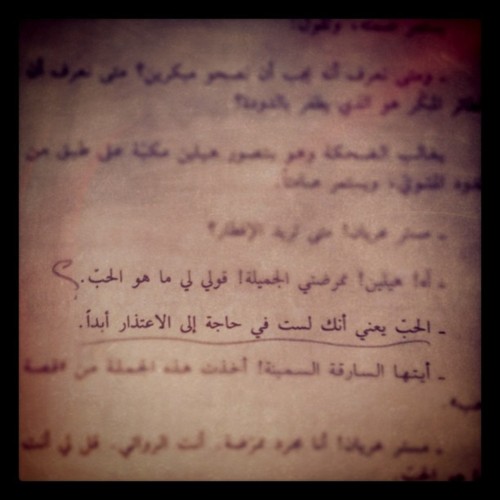 ـ ومتى نعرف أنه يجب أن نصحو مبكرين؟ متى نعرف أن
المبكر هو الذي يظفر بالدودة؟
يغالب الضحكة وهو يتصور هيلين مكبّة على طبق من
ويستمر صامتاً.
ـ مستر عريان! متى تريد الإفطار؟
ـ آه! هيلين! ممرضتي الجميلة! قولي لي ما هو الحبّ.
ـ الحبّ يعني أنك لست في حاجة إلى الاعتذار أبداً.
ـ أيتها السارقة السمينة! أخذت هذه الجملة من «قصة
حب».
ـ مستر عريان! أنا مجرد ممرّضة. أنت الروائي. قل لي أنت
ما هو الحبّ.